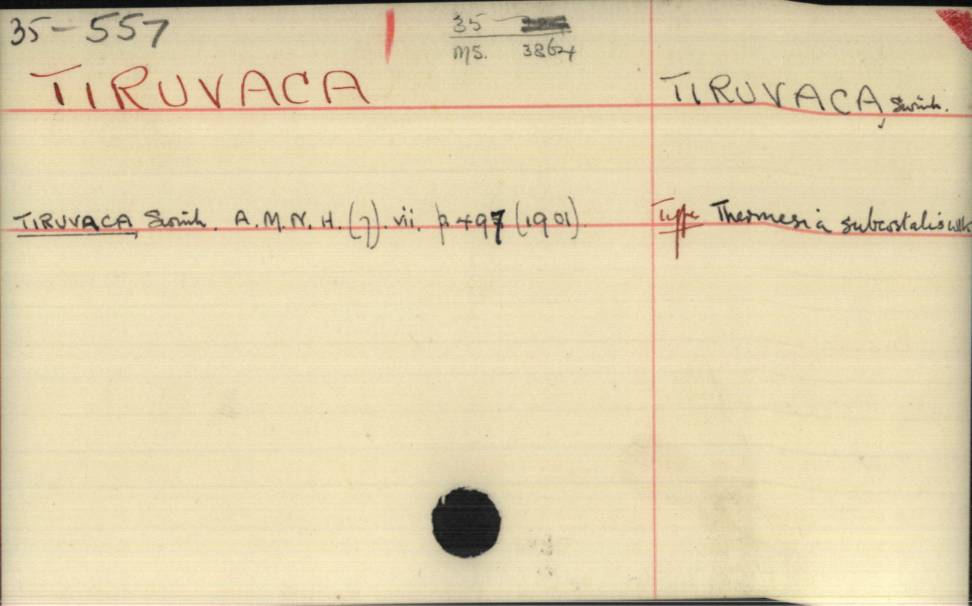 35-557
35
MS. 3864
TIRUVACA
TIRUVACA, Swinh.
TIRUVACA Swinh. A.M.N.H. (7). vii. p.497 (1901).
Type Thermesia subcostalis Wlk